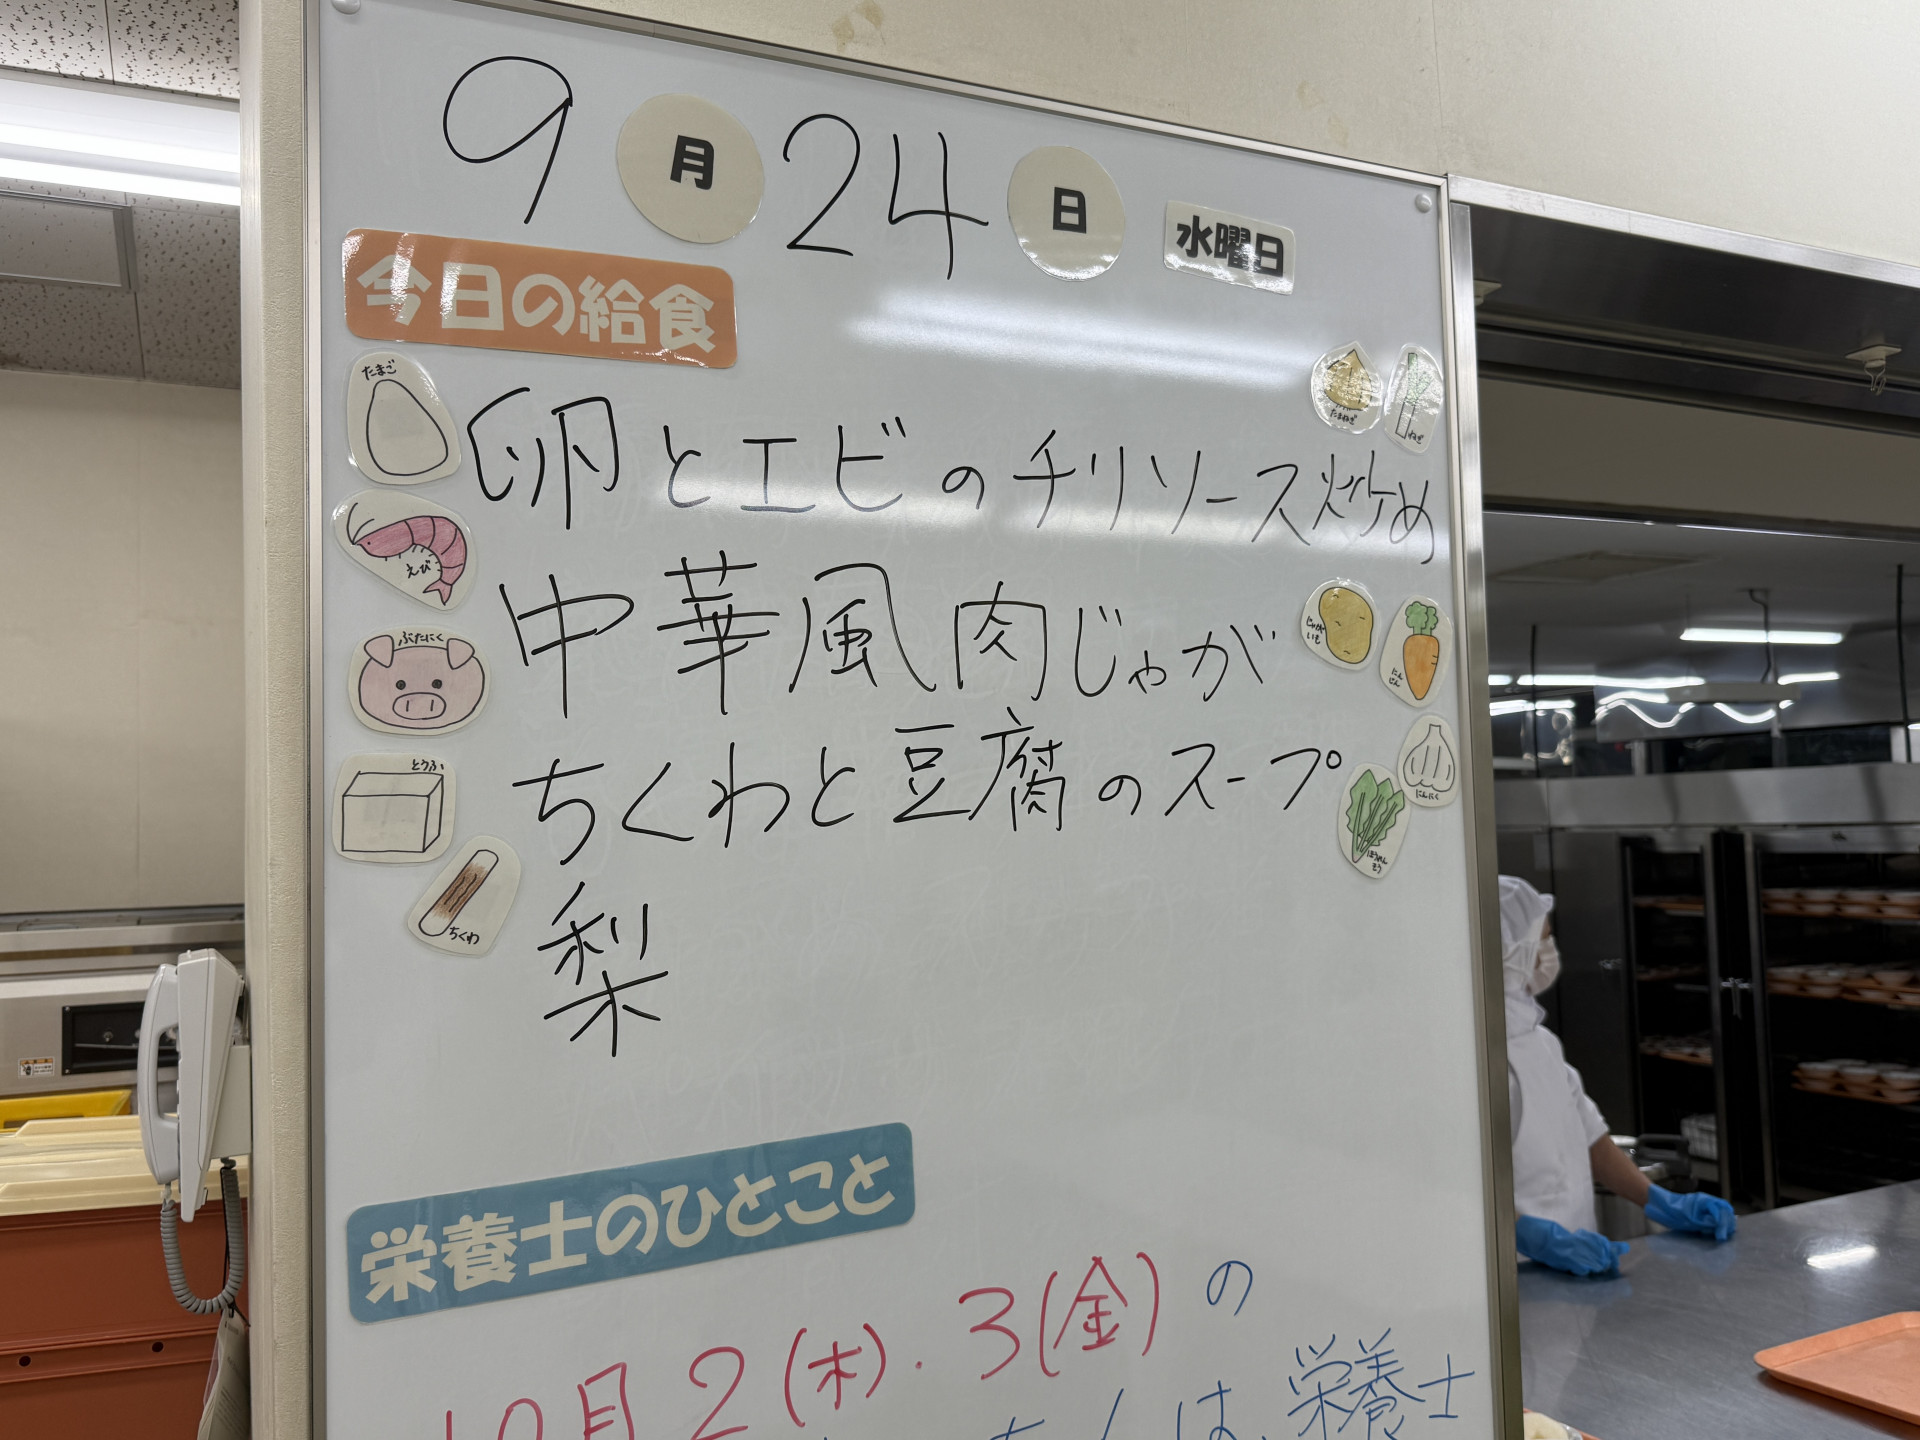 9月24日 水曜日
今日の給食
たまご
卵とエビのチリソース炒め
たまねぎ
ねぎ
えび
中華風肉じゃが
ぶたにく
じゃがいも
にんじん
ちくわと豆腐のスープ
とうふ
にんにく
ほうれんそう
ちくわ
梨
栄養士のひとこと
10月2(木)・3(金)の
は、栄養士